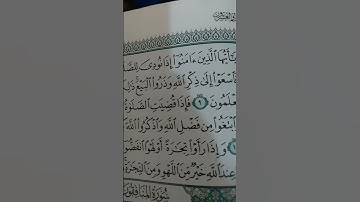 يَٰٓأَيُّهَا ٱلَّذِينَ ءَامَنُوٓا۟ إِذَا نُودِىَ
فَٱسْعَوْا۟ إِلَىٰ ذِكْرِ ٱللَّهِ وَذَرُوا۟ ٱلْبَيْعَ
تَعْلَمُونَ ٩ فَإِذَا قُضِيَتِ ٱلصَّلَوٰةُ
وَٱبْتَغُوا۟ مِن فَضْلِ ٱللَّهِ وَٱذْكُرُوا۟ ٱللَّهَ
وَإِذَا رَأَوْا۟ تِجَٰرَةً أَوْ لَهْوًا ٱنفَضُّوٓا۟
عِندَ ٱللَّهِ خَيْرٌ مِّنَ ٱللَّهْوِ وَمِنَ ٱلتِّجَٰرَةِ
سُورَةُ المُنَافِقُونَ